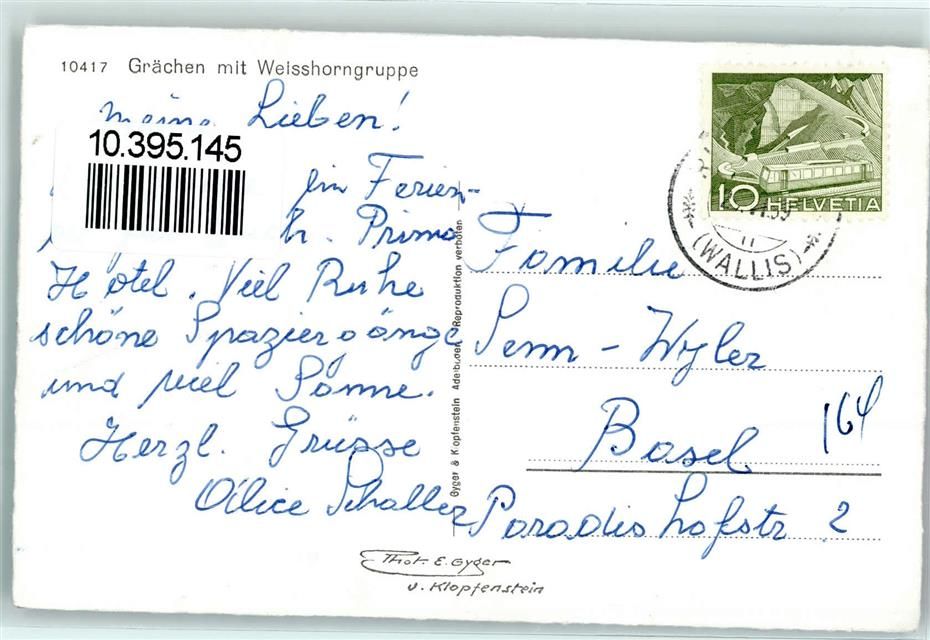 10417 Grächen mit Weisshorngruppe
meine Lieben!
10.395.145
ein Ferien-
Prima
Hotel. Viel Ruhe
schöne Spaziergänge
und viel Sonne.
Herzl. Grüsse
Alice Schaller
Gyger & Klopfenstein Adelboden Reproduktion verboten
10 HELVETIA
(WALLIS)
Familie
Senn - Wyler
Basel
164
Paradieshofstr 2
Phot. E. Gyger
u. Klopfenstein